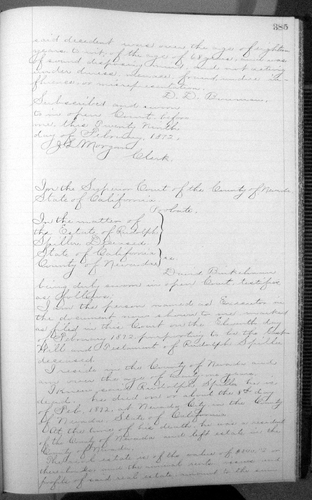 385
said decedent was over the age of eighteen
years to wit of the age of 68 years and was
of sound disposing mind and not acting
under duress, menace, fraud undue In-
fluence or misrepresentation
Subscribed and sworn
to in open Court before
me this Twenty Ninth
day of February, 1892.
Morgan
Clerk.
In the Superior Court of the County of Nevada
State of California
Probate.
In the matter of
the Estate of Rudolph
Spiller Deceased
State of California
County of Nevada ss
David
being duly sworn in open Court testifies
as follows:
I am the person named as Executor in
the document now shown to me marked
as filed in this Court on the day
of February 1892 purporting to be the Last
Will and Testament of Rudolph Spiller
deceased
I reside in the County of Nevada and
am over the age of years
I knew said Rudolph Spiller he is
dead. he died on or about the day
of Feb. 1892, at Nevada City in the County
of Nevada State of California
At the time of his death he was a resident
of the County of Nevada and left estate in the
County of Nevada
real estate is of the value of
and the annual rents and
profits of said real estate amount to the sum